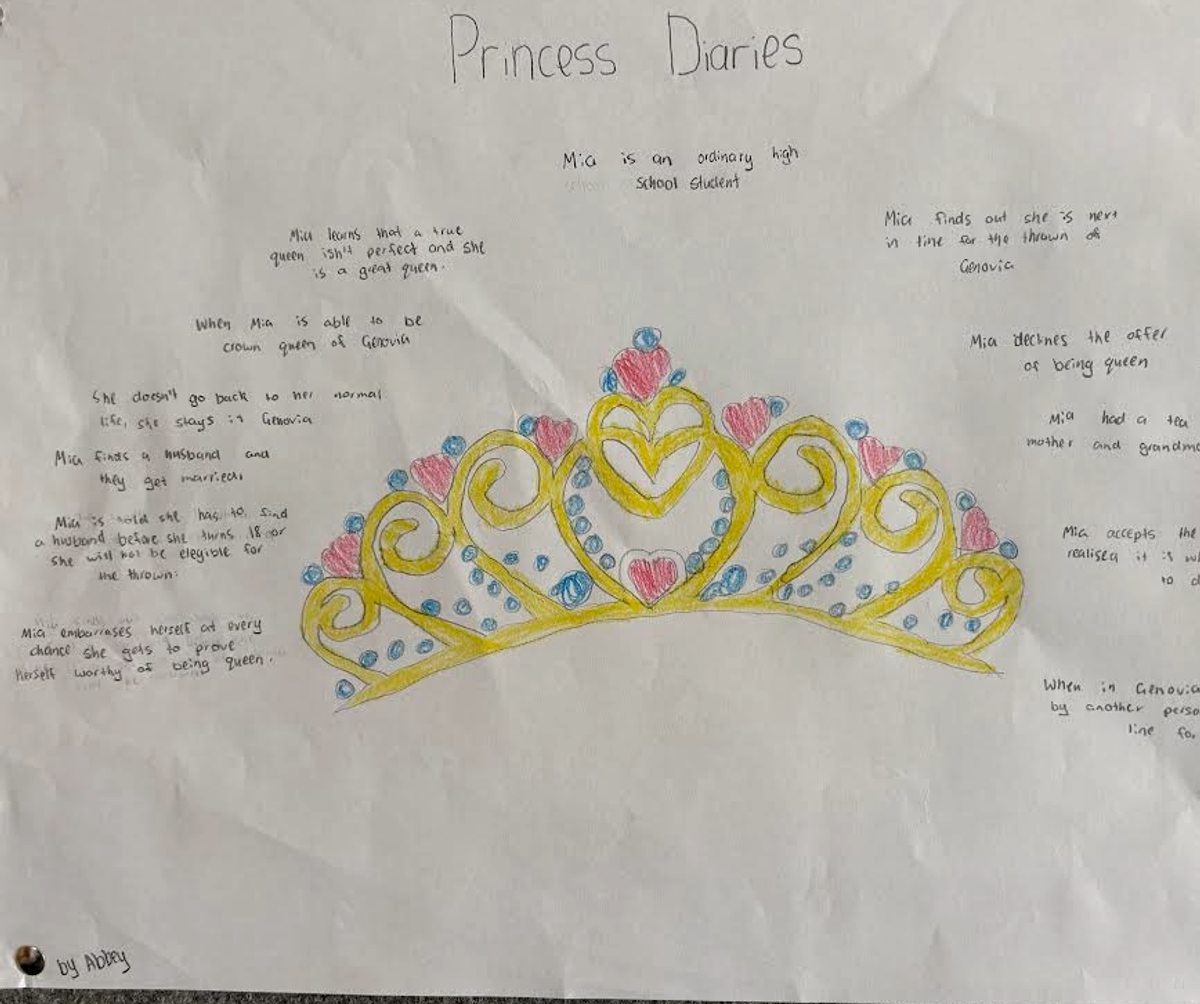 Princess Diaries
Mia is an ordinary high
school student
Mia finds out she is next
in line for the thrown of
Genovia
Mia declines the offer
of being queen
Mia had a tea
mother and grandmo
Mia accepts the
realised it is
to
When in Genovia
by another perso
line fo
Mia embarrases herself at every
chance she gets to prove
herself worthy of being queen.
Mia is told she has to find
a husband before she turns 18 or
she will not be elegible for
the thrown.
Mia finds a husband and
they get married.
She doesn't go back to her normal
life, she stays in Genovia
When Mia is able to be
crown queen of Genovia
Mia learns that a true
queen isn't perfect and she
is a great queen.
by Abbey